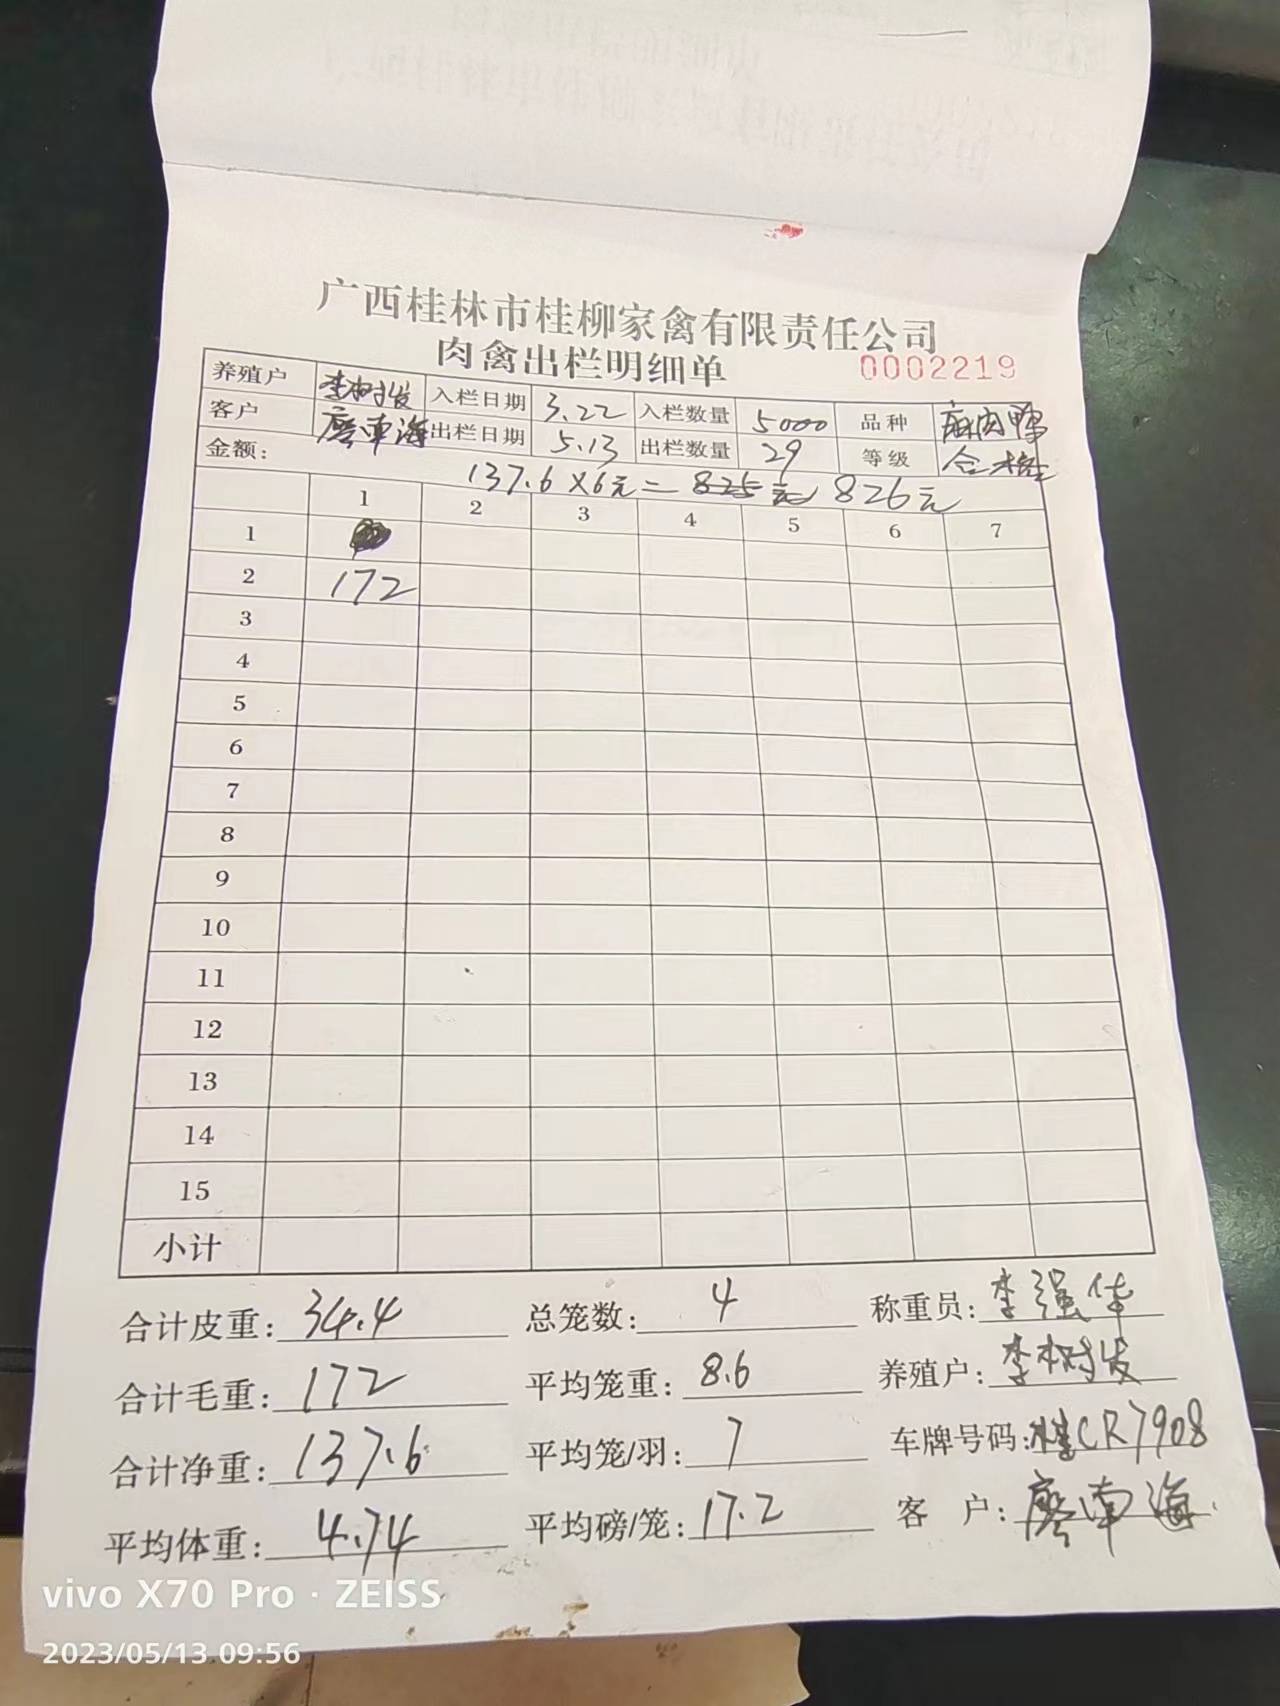 广西桂林市桂柳家禽有限责任公司
肉禽出栏明细单 0002219
养殖户 李树发 入栏日期 3.22 入栏数量 5000 品种 麻肉鸭
客户 廖南海 出栏日期 5.13 出栏数量 29 等级 合格
金额: 137.6×6元=825元 826元
1 2 3 4 5 6 7
1
2 172
3
4
5
6
7
8
9
10
11
12
13
14
15
小计
合计皮重: 34.4 总笼数: 4 称重员: 李强华
合计毛重: 172 平均笼重: 8.6 养殖户: 李树发
合计净重: 137.6 平均笼/羽: 7 车牌号码: 桂CR7908
平均体重: 4.74 平均磅/笼: 17.2 客户: 廖南海
vivo X70 Pro · ZEISS
2023/05/13 09:56